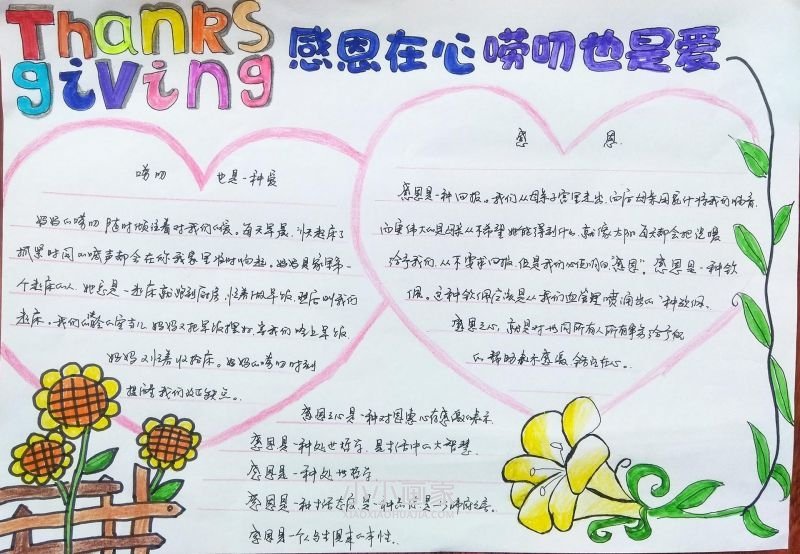 Thanks
giving
感恩在心唠叨也是爱
唠叨 也是一种爱
妈妈的唠叨随时倾注着对我们的爱。每天早晨,"快起床了
抓紧时间"的喊声都会在你我家里临时响起。妈妈是家里第一
个起床的人。她总是一起床就跑到厨房,忙着做早饭,然后叫我们
起床。我们
妈妈又把早饭摆好,等我们吃上早饭,
妈妈又忙着收拾床。妈妈的唠叨时刻
提醒我们改正缺点。
感 恩
感恩是一种回报。我们从母亲子宫里走出,而后母亲用乳汁将我们哺育
而更伟大的是母亲从不希望她能得到什么。就像太阳每天都会把温暖
给予我们,从不要求回报,但是我们必须明白"感恩"。感恩是一种钦
佩。这种钦佩应该是从我们血管里喷涌出的一种钦佩。
感恩之心,就是对世间所有人所有事物给予自己
的帮助表示感激,铭记在心。
感恩之心是一种对因果心存感激的表示
感恩是一种处世哲学,是生活中的大智慧
感恩是一种处世哲学
感恩是一种生活态度,是一种品德,是一
感恩是一个人与生俱来的本性.
小小画家